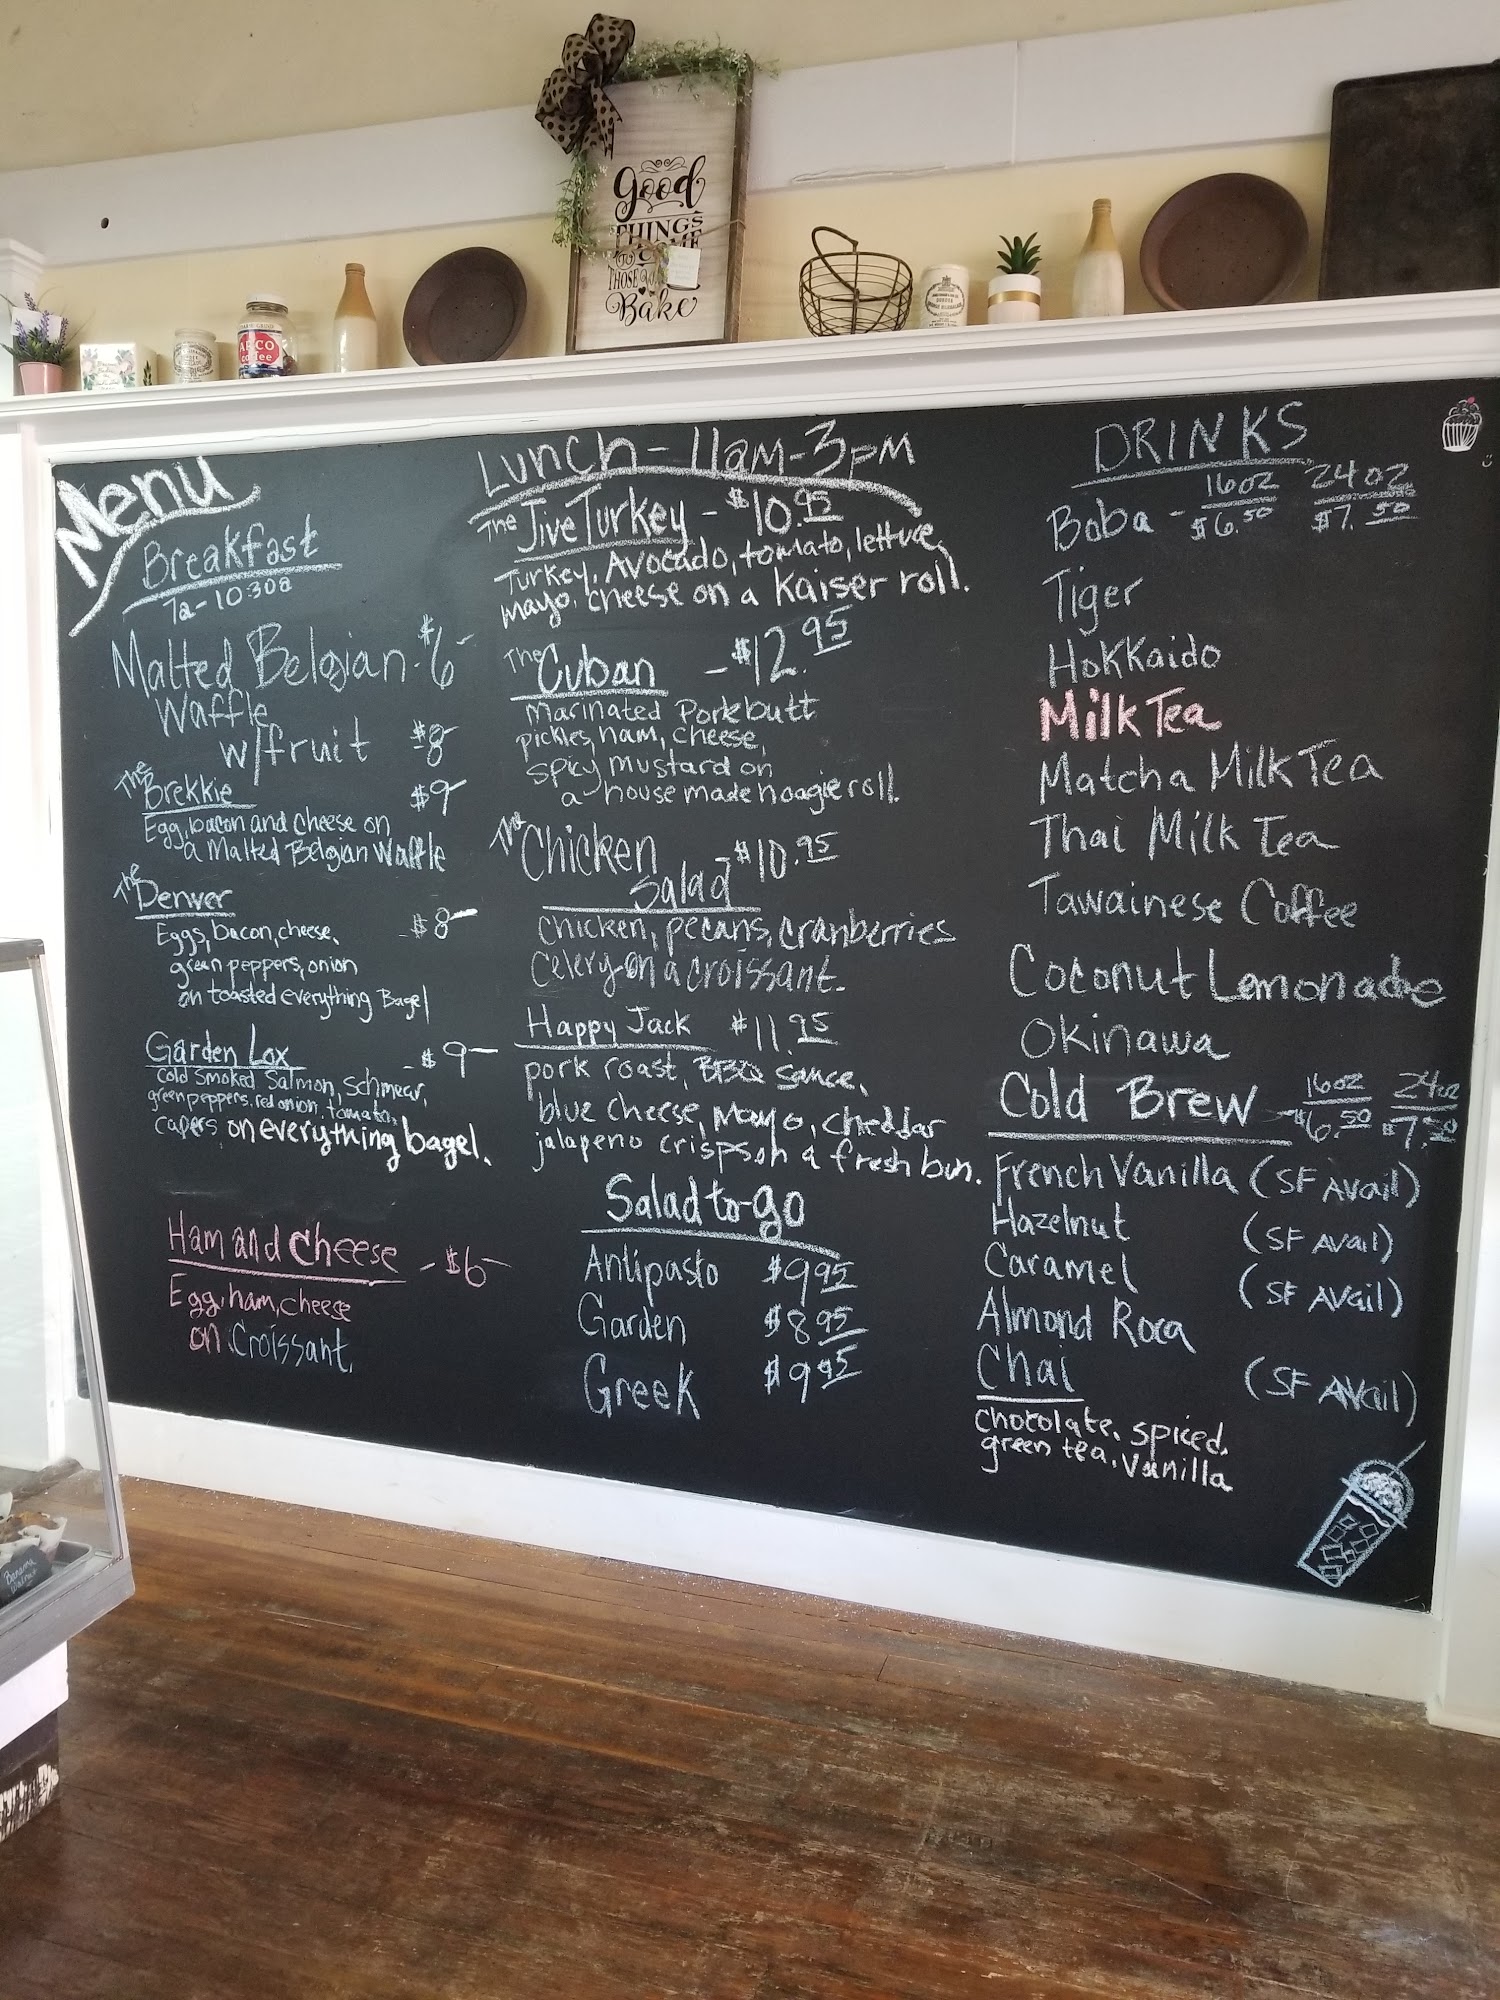 Good
THINGS
COME
TO
THOSE WHO
Bake
coffee
Banana
Walnut
Menu
Breakfast
7a-10:30a
Malted Belgian - $6-
Waffle
w/fruit $8-
The Brekkie $9-
Egg, bacon and cheese on
a Malted Belgian Waffle
The Denver - $8-
Eggs, bacon, cheese,
green peppers, onion
on toasted everything Bagel
Garden Lox - $9-
Cold Smoked Salmon, Schmear,
green peppers, red onion, tomato,
capers on everything bagel.
Ham and cheese - $6-
Egg, ham, cheese
on Croissant.
Lunch - 11am-3pm
The Jive Turkey - $10.95
Turkey, Avocado, tomato, lettuce,
mayo, cheese on a Kaiser roll.
The Cuban - $12.95
Marinated Pork butt
pickles, ham, cheese,
spicy mustard on
a house made hoagie roll.
The Chicken
Salad $10.95
Chicken, pecans, cranberries
Celery on a croissant.
Happy Jack $11.95
pork roast, BBQ sauce,
blue cheese, Mayo, cheddar
jalapeno crisps on a fresh bun.
Salad to-go
Antipasto $9.95
Garden $8.95
Greek $9.95
DRINKS
16oz 24oz
Boba - $6.50 $7.50
Tiger
Hokkaido
Milk Tea
Matcha Milk Tea
Thai Milk Tea
Tawainese Coffee
Coconut Lemonade
Okinawa
16oz 24oz
Cold Brew - $6.50 $7.50
French Vanilla (SF Avail)
Hazelnut (SF Avail)
Caramel (SF Avail)
Almond Roca
Chai (SF Avail)
chocolate, spiced,
green tea, vanilla